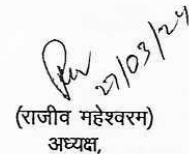 27/03/24
(राजीव महेश्वरम)
अध्यक्ष,